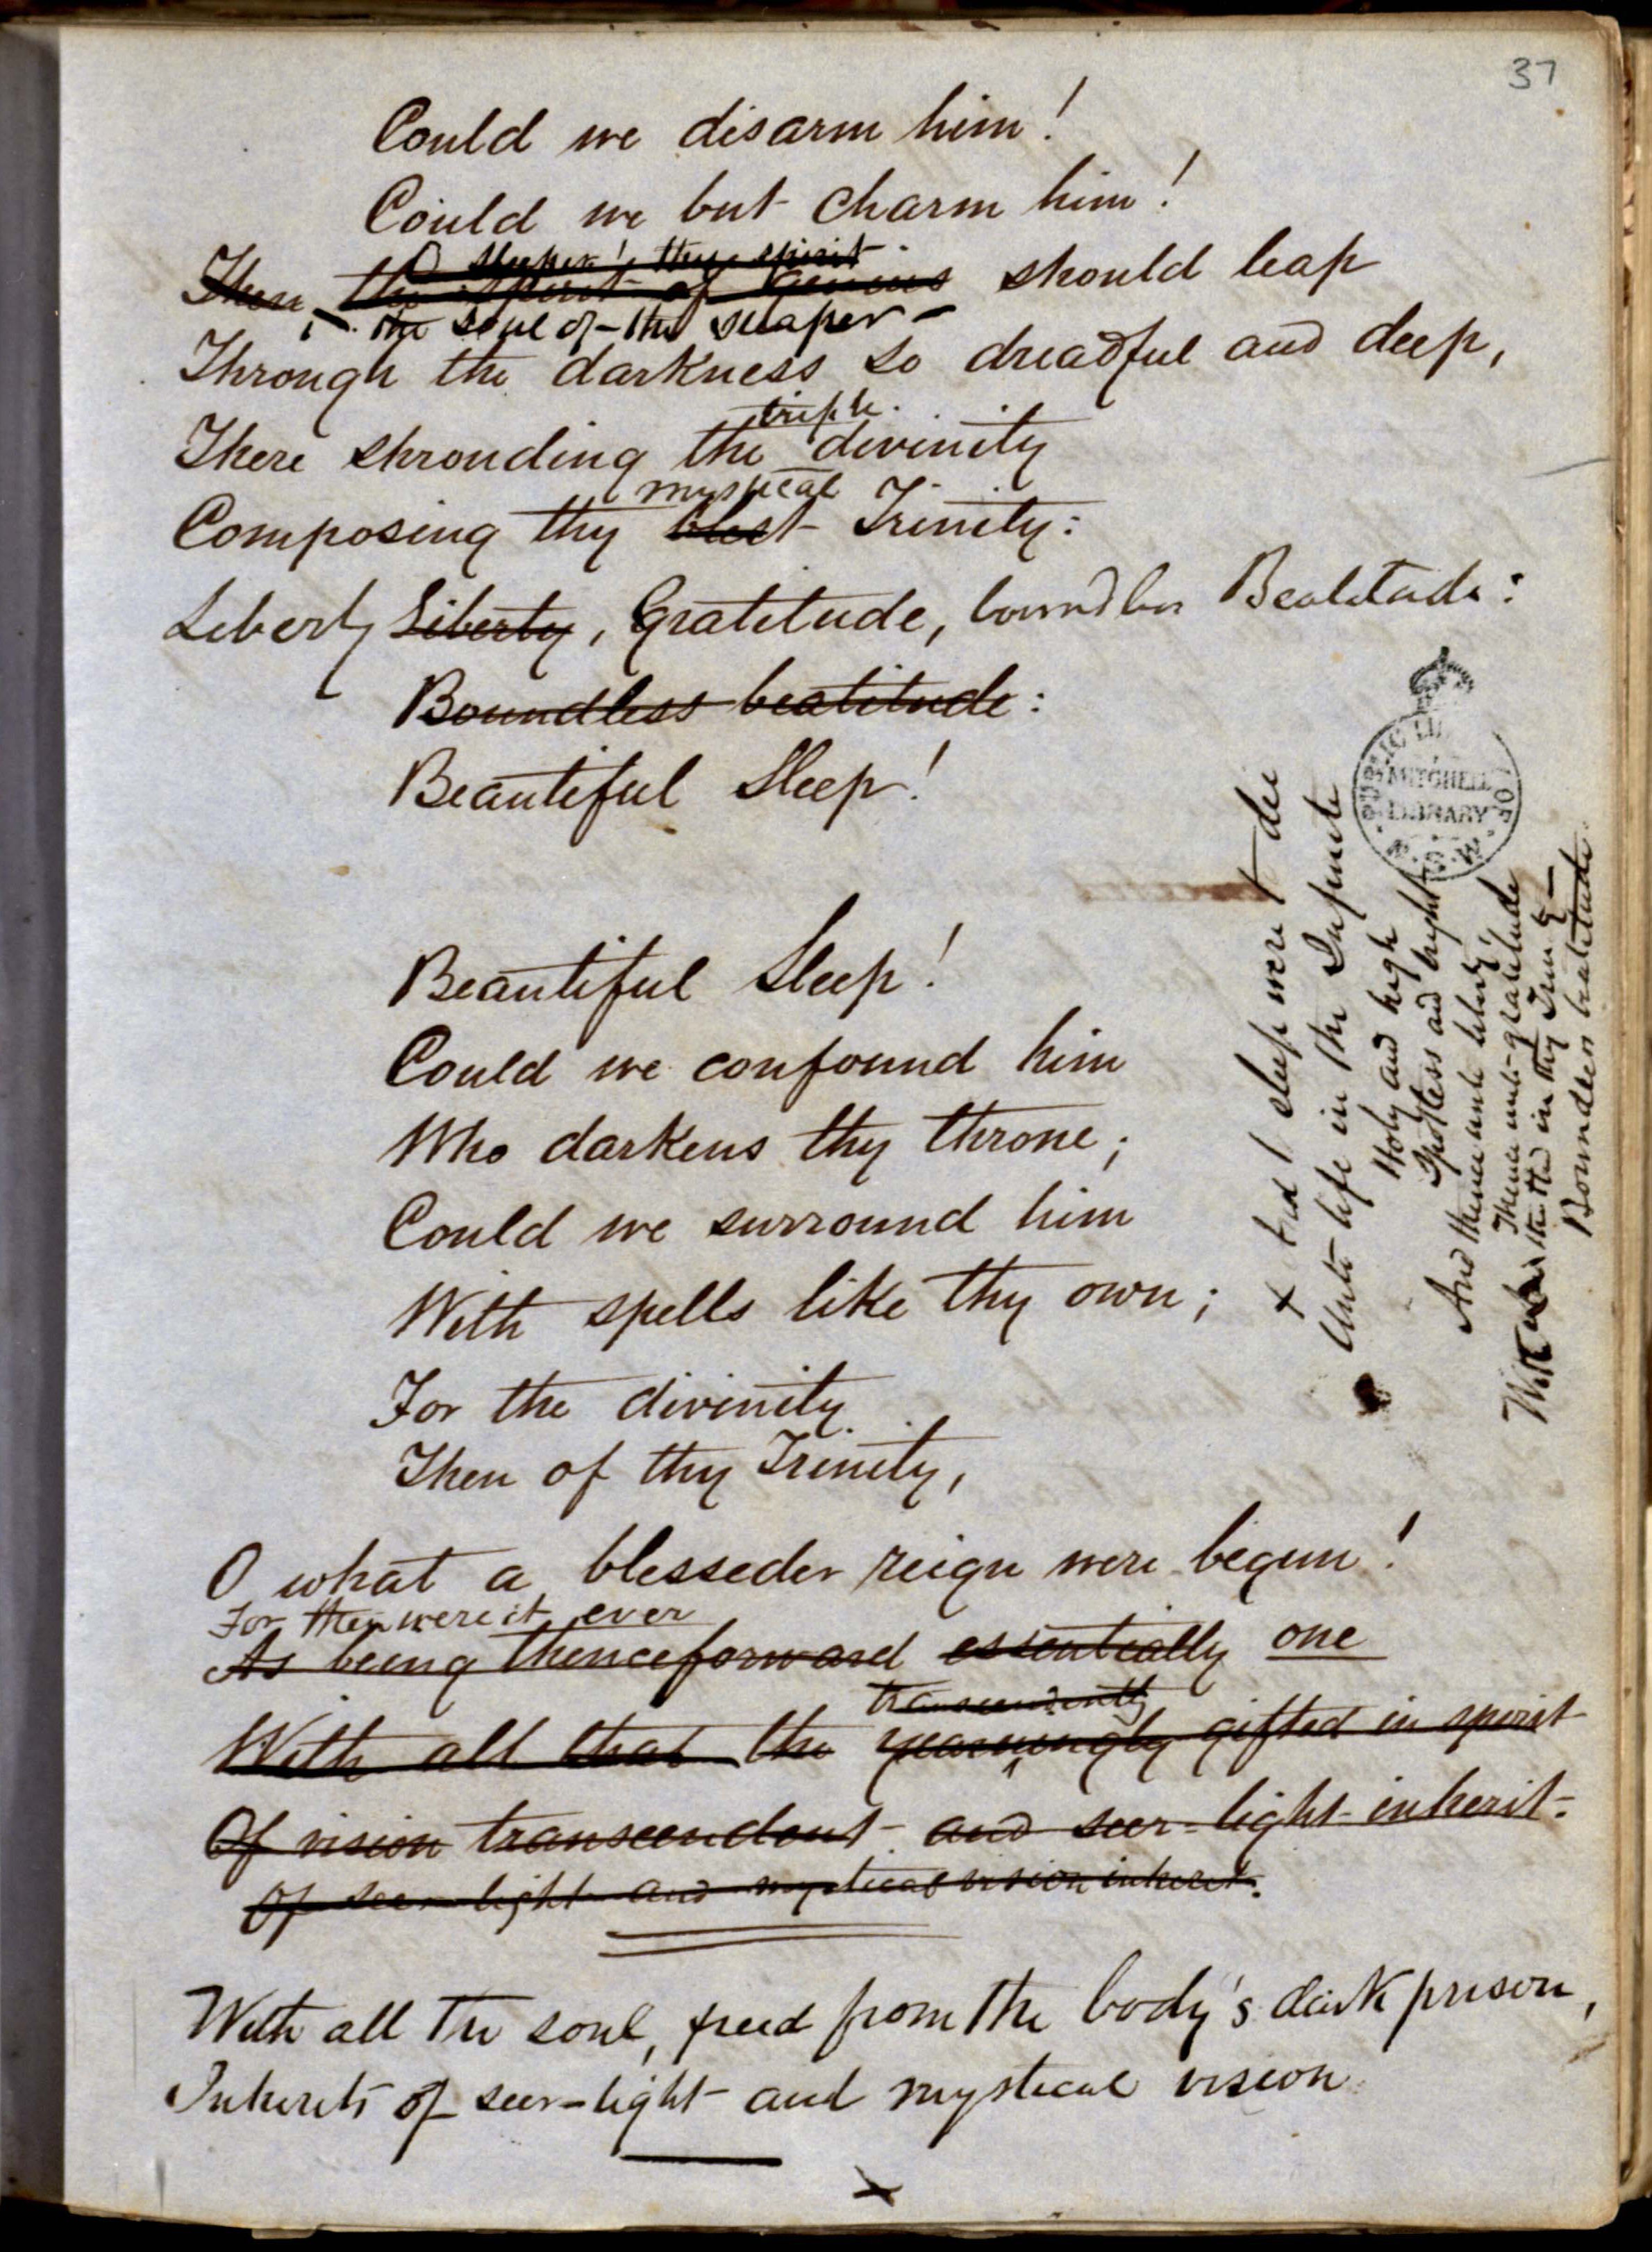 37
Could we disarm him!
Could we but charm him!
O sleeper! thy spirit
Then, the spirit of genius should leap
the soul of the sleeper
Through the darkness so dreadful and deep,
triple
There shrouding the divinity
mystical
Composing thy blest Trinity:
Liberty Liberty, Gratitude, boundless Beatitude:
Boundless beatitude:
Beautiful Sleep!
PUBLIC LI
MITCHELL
LIBRARY
OF
N.S.W.
Beautiful Sleep!
Could we confound him
Who darkens thy throne;
Could we surround him
With spells like thy own;
For the divinity
Then of thy Trinity,
O what a blesseder reign were begun!
For then were it ever
As being thenceforward essentially one
transcendently
With all that the yearningly gifted in spirit
Of vision transcendent and seer-light inherit.
Of seer light and mystical vision inherit.
With all the soul, freed from the body's dark prison,
Inherits of seer-light and mystical vision
x
x sleep were to die
Unto life in the Infinite
Holy and high
Spotless and bright
And thence unto liberty,
Thence unto gratitude
With the third in thy Trinity—
Boundless beatitude